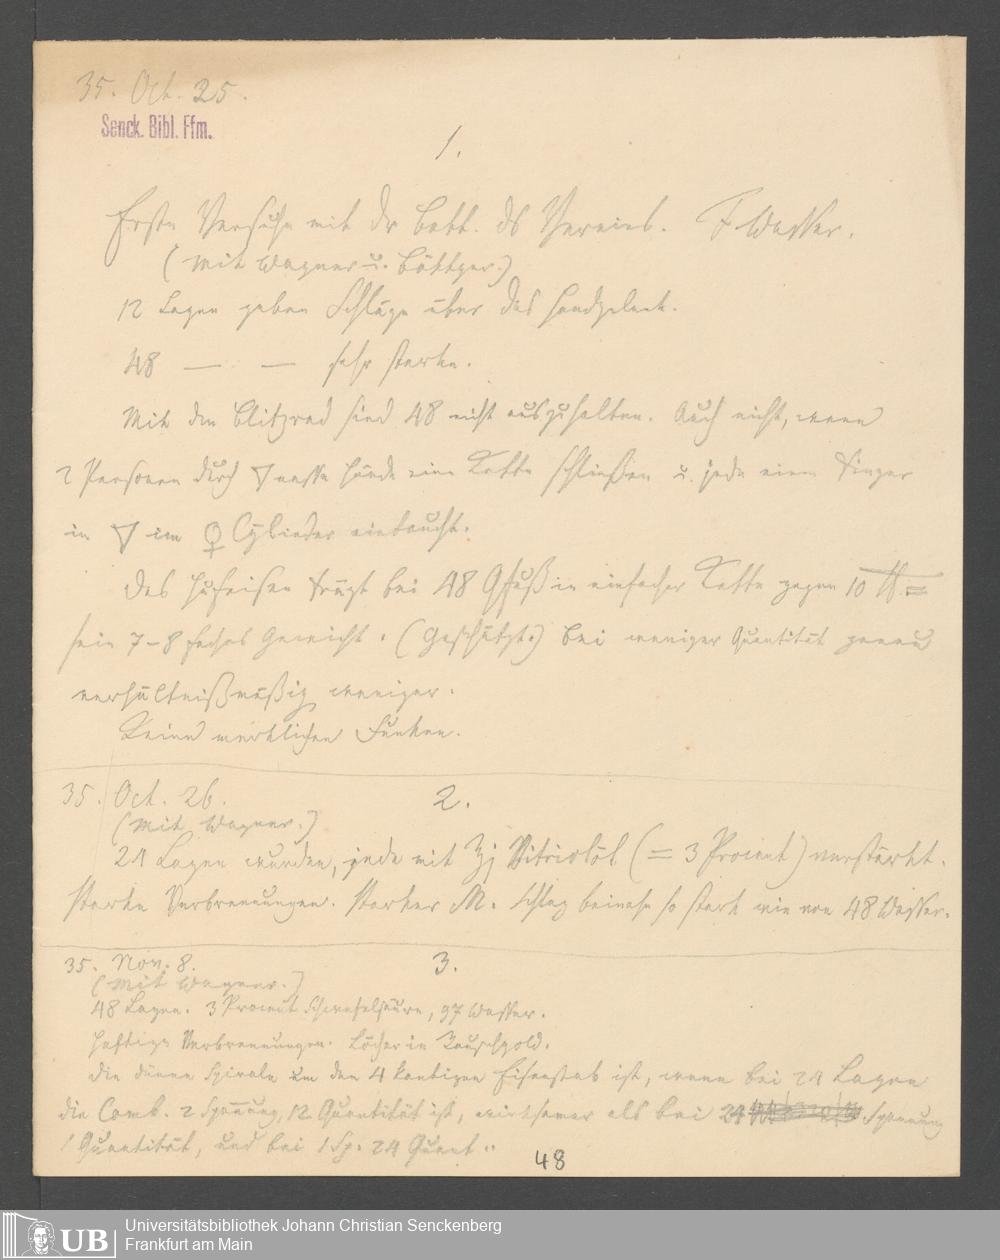 35. Oct. 25.
Senck. Bibl. Ffm.
1.
Erste Versuche mit dr Batt. ds Vereins. F Wasser.
(Mit Wagner u. Böttger.)
12 Lagen geben Schläge über das Handgelenk.
48 — — sehr starke.
Mit dem Blitzrad sind 48 nicht auszuhalten. Auch nicht, wenn
2 Personen durch ▽ nasse Hände eine Kette schließen u. jede einen Finger
in ▽ im ♀ Cylinder eintaucht.
Das Hufeisen trägt bei 48 Qfuß in einfacher Kette gegen 10 ℔. =
sein 7–8 faches Gewicht. (Geschätzt.) Bei weniger Quantität genau
verhältnißmäßig weniger.
Keine merklichen Funken.
35. Oct. 26.
2.
(Mit Wagner.)
24 Lagen wurden, jede mit ʒj Vitriolöl (= 3 Procent) verstärkt.
Starke Verbrennungen. Starker M. Schlag beinahe so stark wie von 48 Wasser.
35. Nov. 8.
3.
(Mit Wagner.)
48 Lagen. 3 Procent Schwefelsäure, 97 Wasser.
Heftige Verbrennungen. Löcher in Rauschgold.
Die dünne Spirale um den 4 kantigen Eisenstab ist, wenn bei 24 Lagen
die Comb. 2 Spannung, 12 Quantität ist, wirksamer als bei 24 Spannung
1 Quantität, und bei 1 Sp. 24 Quant..
48
UB
Universitätsbibliothek Johann Christian Senckenberg
Frankfurt am Main